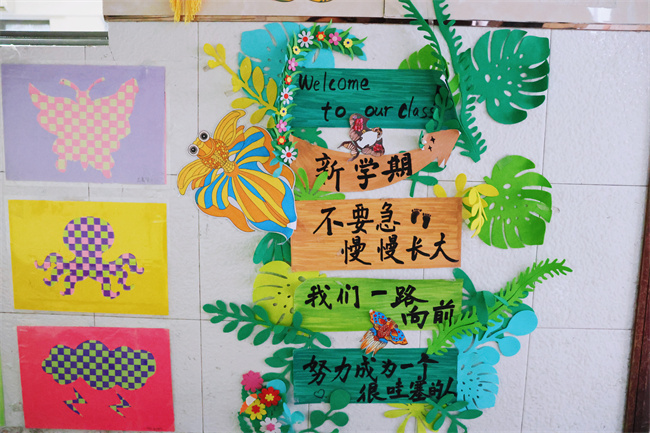 Welcome
to our class
新学期
不要急
慢慢长大
我们一路
向前
努力成为一个
很哇塞的人